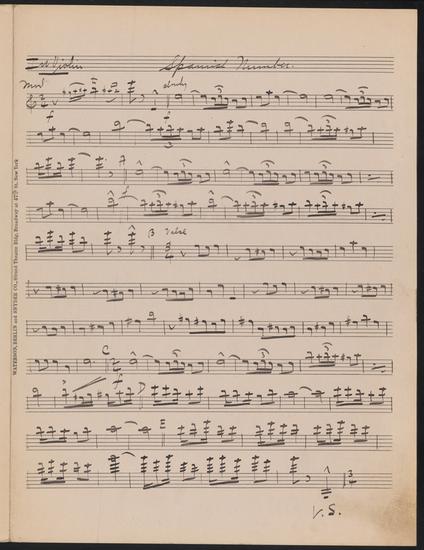 1st Violin Spanish Number.
Mod
steady
f
3
A
f
B Valse
C
E
V.S.
WATERSON, BERLIN and SNYDER CO., Strand Theatre Bldg. Broadway at 47th St. New York